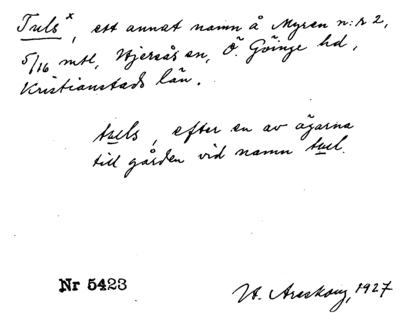 Tuls x, ett annat namn å Myren n:r 2,
5/16 mtl, Hjersås sn, Ö. Göinge hd,
Kristianstads län.
tuels, efter en av ägarna
till gården vid namn tuel.
Nr 5423
W. Areskoug, 1927